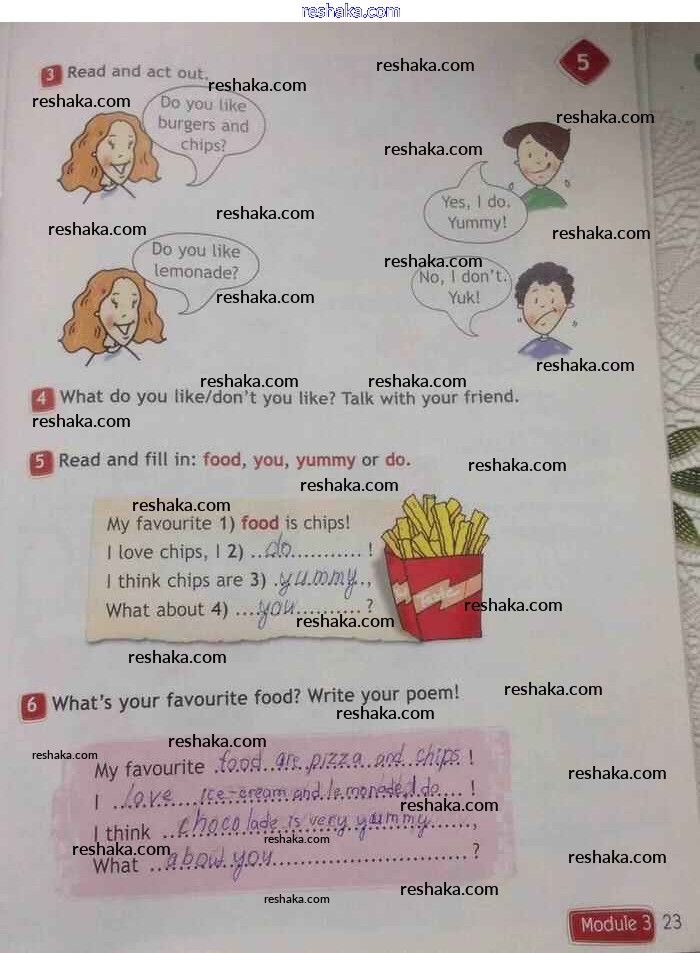 reshaka.com
3 Read and act out.
reshaka.com
5
reshaka.com
reshaka.com
Do you like
burgers and
chips?
reshaka.com
reshaka.com
Yes, I do.
Yummy!
reshaka.com
reshaka.com
reshaka.com
Do you like
lemonade?
reshaka.com
No, I don't.
Yuk!
reshaka.com
reshaka.com
reshaka.com
reshaka.com
4 What do you like/don't you like? Talk with your friend.
reshaka.com
5 Read and fill in: food, you, yummy or do.
reshaka.com
reshaka.com
reshaka.com
My favourite 1) food is chips!
I love chips, I 2) ..do...........!
I think chips are 3) .yummy..,
What about 4) ....you..........?
Taste
reshaka.com
reshaka.com
reshaka.com
6 What's your favourite food? Write your poem!
reshaka.com
reshaka.com
reshaka.com
reshaka.com
My favourite food are pizza and chips !
reshaka.com
I love ice-cream and lemonade I do !
reshaka.com
I think chocolade is very yummy ,
reshaka.com
reshaka.com
What about you ?
reshaka.com
reshaka.com
reshaka.com
Module 3 23